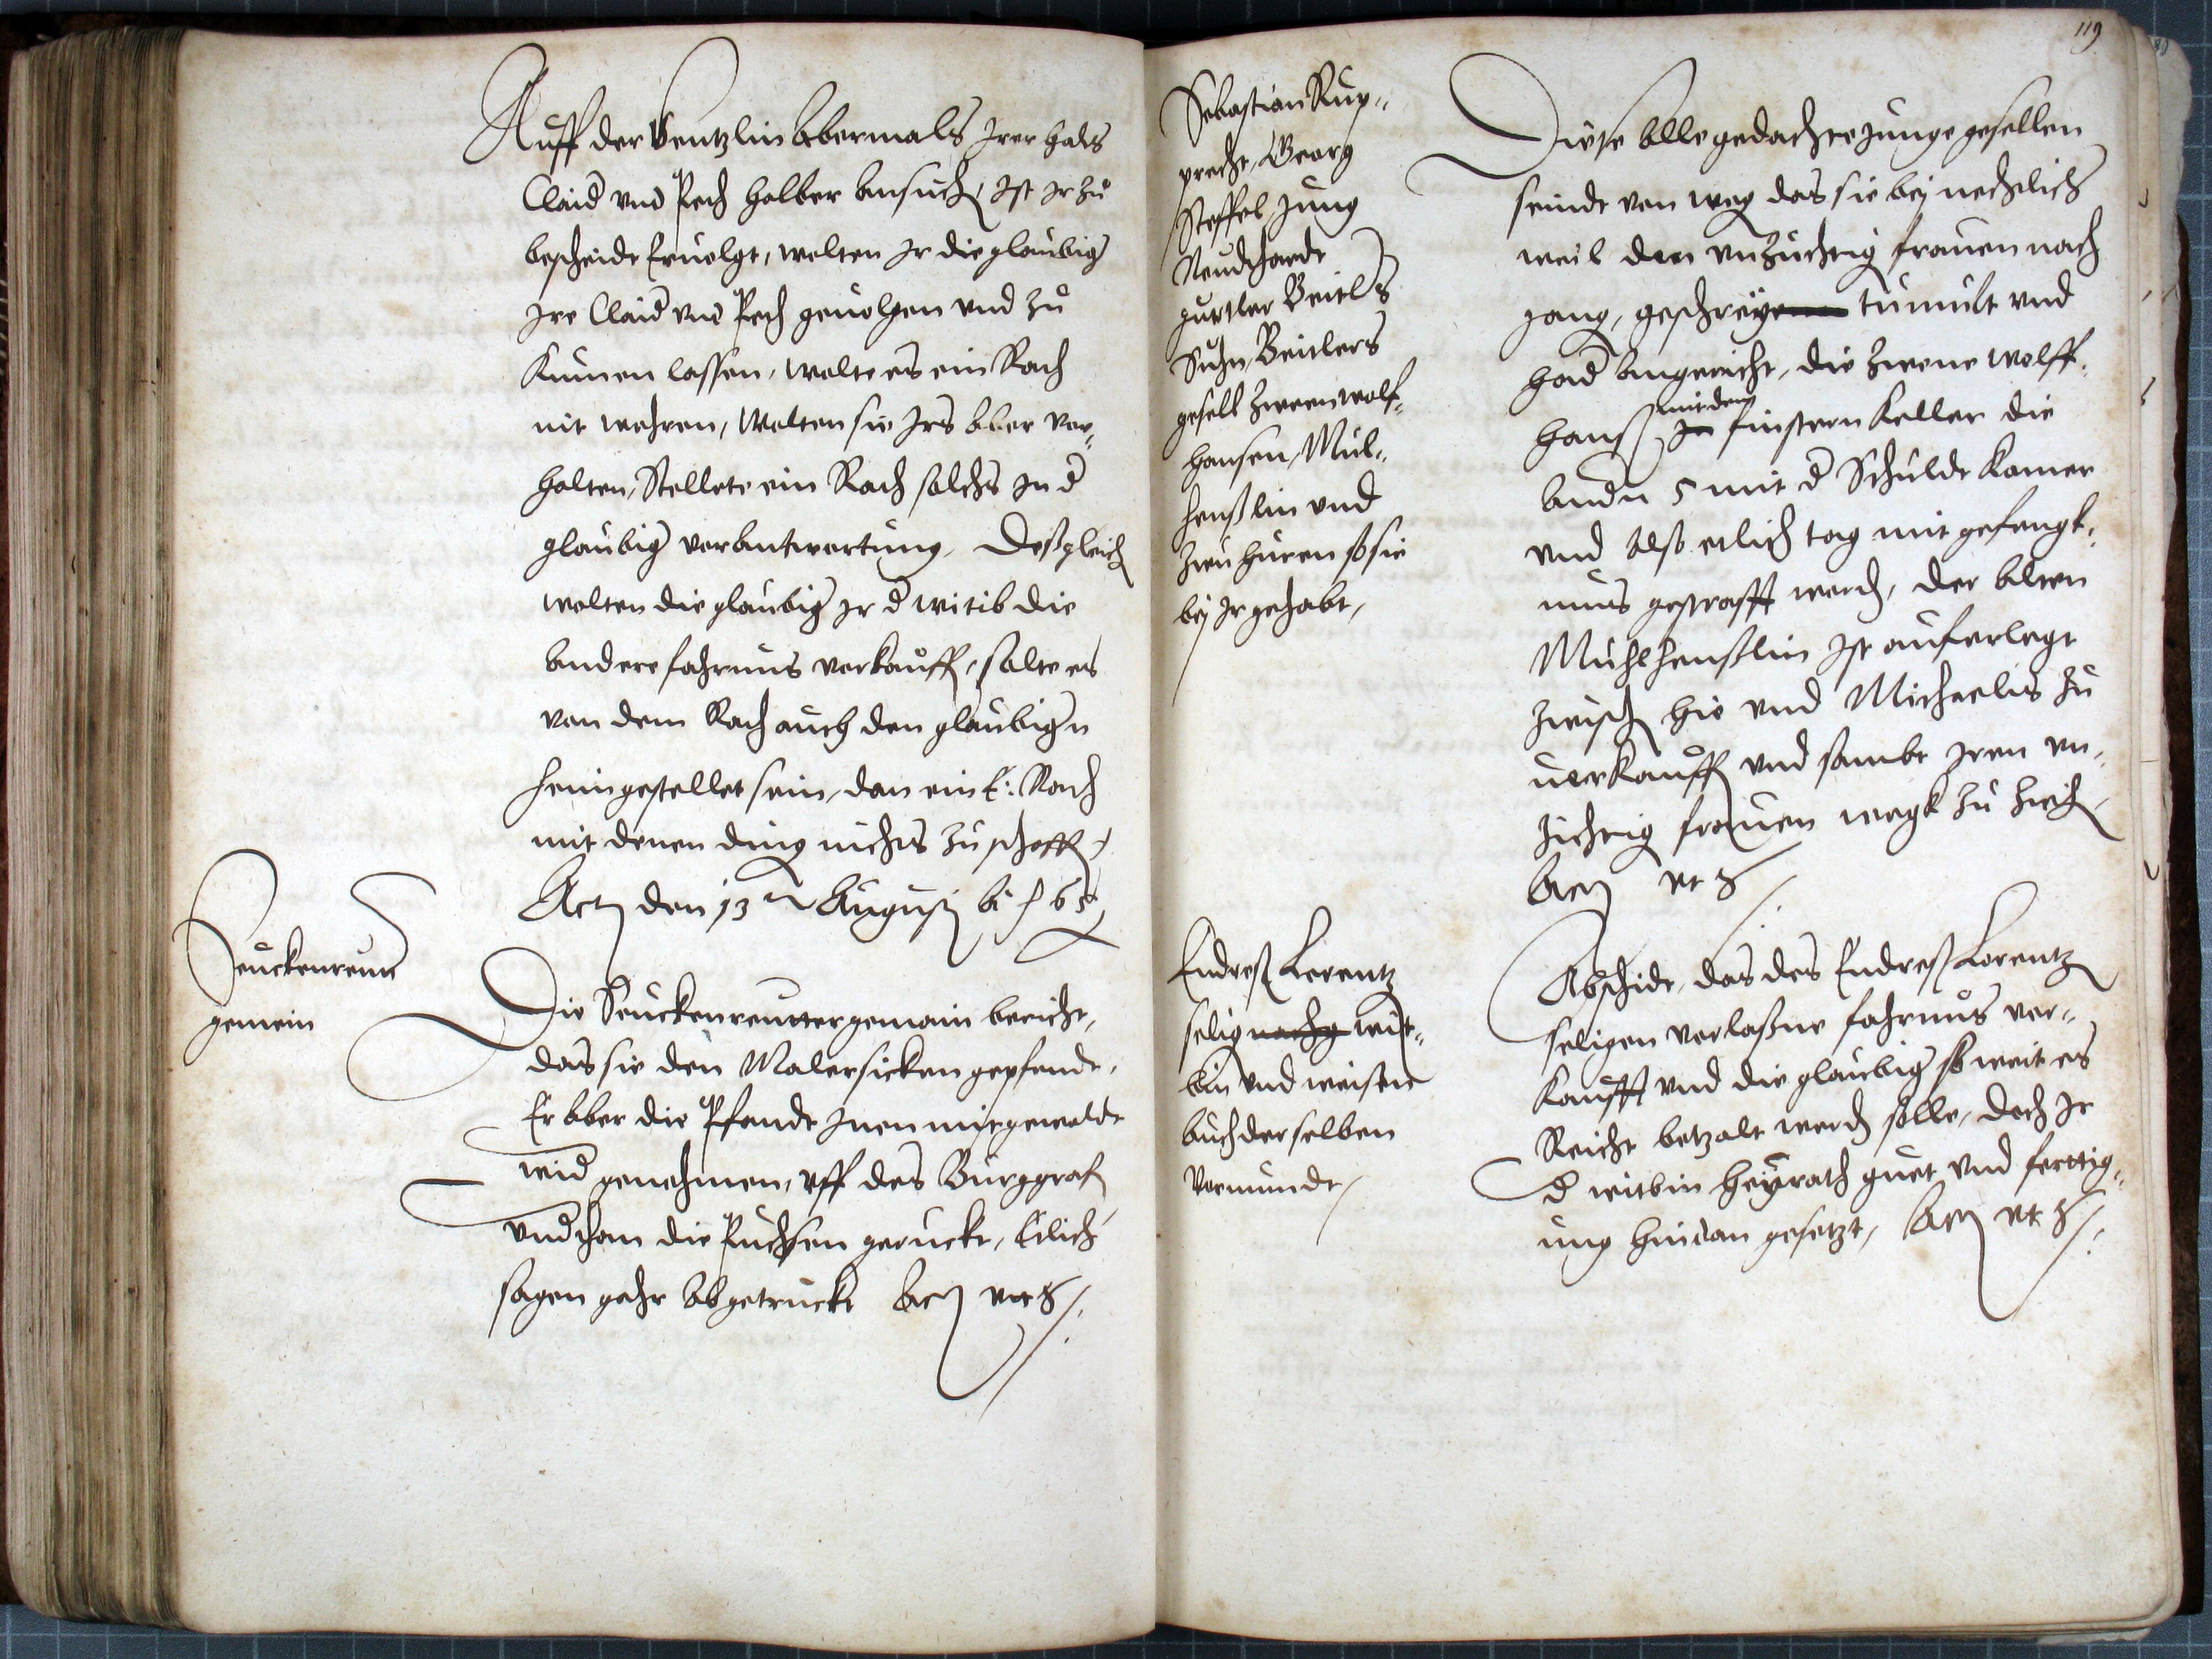 Auff der Bentzlin abermals Irer hals
Claid vnd Pech halber ansuch, Ist Ir zu
bescheidt Eruolgt, wolten Ir die glaubig
Ire Claid vnd Pech geuolgen vnd zu
Kumen lassen, wolte es ein Rath
nit wehren, Wolten sie Irs aber vor,,
halten, Stellete ein Rath solchs In d
glaubig verantwortung, Deßgleich
wolten die glaubig Ir d witib die
andere fahrnus verkauff, solte es
von dem Rath auch den glaubign
heimgestellet sein, dan ein E: Rath
mit denen ding nichts zuschaff
Act den 13 Augusti a 65
Seuckenreut
gemein
Die Seuckenreutter gemain bericht,
das sie den Malersicken gepfendt,
Er aber die Pfandt Inen mit gewaldt
wid genohmen, vff des Burggraf
vnd Ihm die Puchsen geruckt, Etlich
sagen gahr abgetruckt Act vt s
119
Sebastian Rup,,
precht, Georg
Steffel Jung
gurtler Beitls
Suhn, Beitlers
gesell zween wolf,,
hansen, Mul,,
henßlin vnd
zwu huren so sie
bej Ir gehabt,
Diese alle gedachte junge gesellen
seindt von weg das sie bej nechtlich
weil den vnzuchtig frauen nach
gang, geschrey tumult vnd
had angericht, die zwene wolff,
hanß mit dem finstern Keller die
andn 5 mit d Schuldt Kamer
vnd also etlich tag mit gefengk,,
nus gestrafft word, der alten
Muhlhenßlin Ist auferlegt
zwisch hie vnd Michaelis zu
uerkauff vnd sambt Iren vn,,
zuchtig frauen wegk zu zieh
Act vt s
Endreß Lorentz
selig nachg wit,,
bin vnd weisen
auch derselben
Vormundt
Abschidt, das des Endreß Lorentz
seligen verlaßne fahrnus ver,,
kaufft vnd die glaubig so weit es
Reicht betzalt werd solle, doch Ir
d witbin heyrath guet vnd fertig,,
ung hindan gesetzt, Act vt s